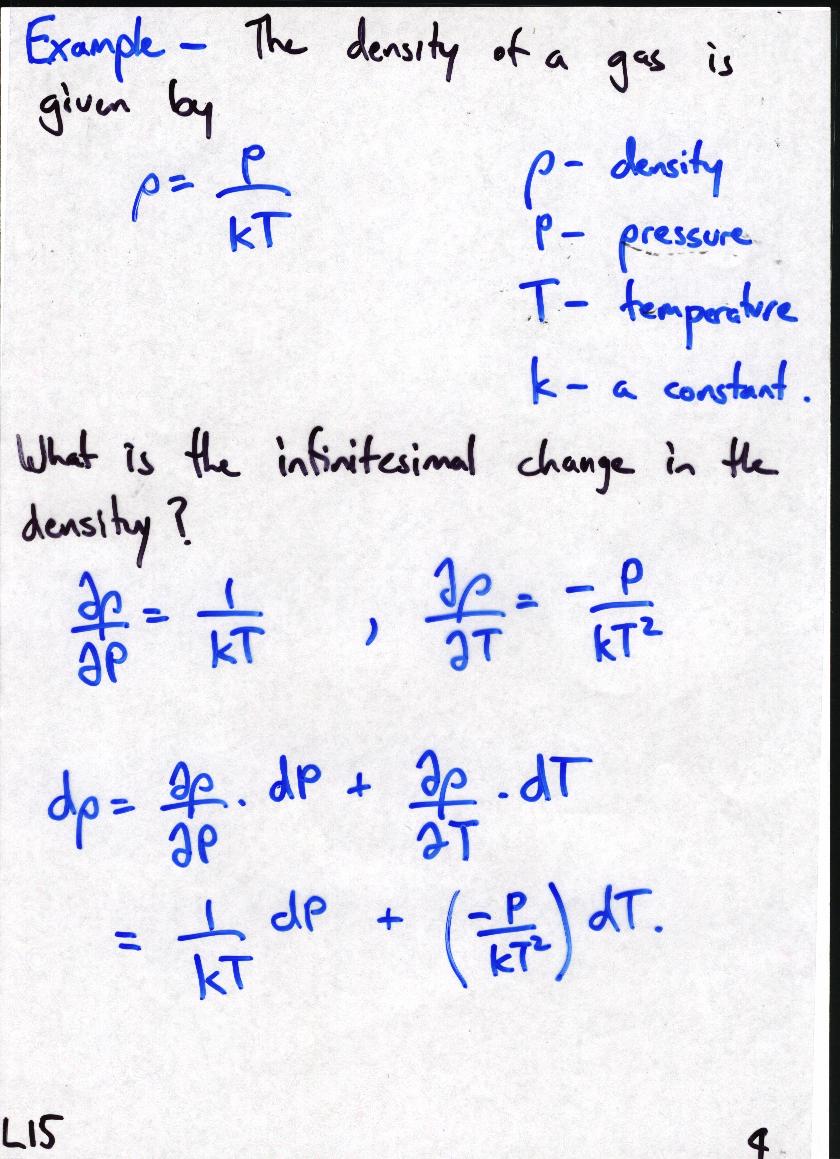 Example - The density of a gas is
given by
ρ = P/kT
ρ - density
P - pressure
T - temperature
k - a constant.
What is the infinitesimal change in the
density?
∂ρ/∂P = 1/kT , ∂ρ/∂T = -P/kT²
dρ = ∂ρ/∂P · dP + ∂ρ/∂T · dT
= 1/kT dP + (-P/kT²) dT.
L15
4